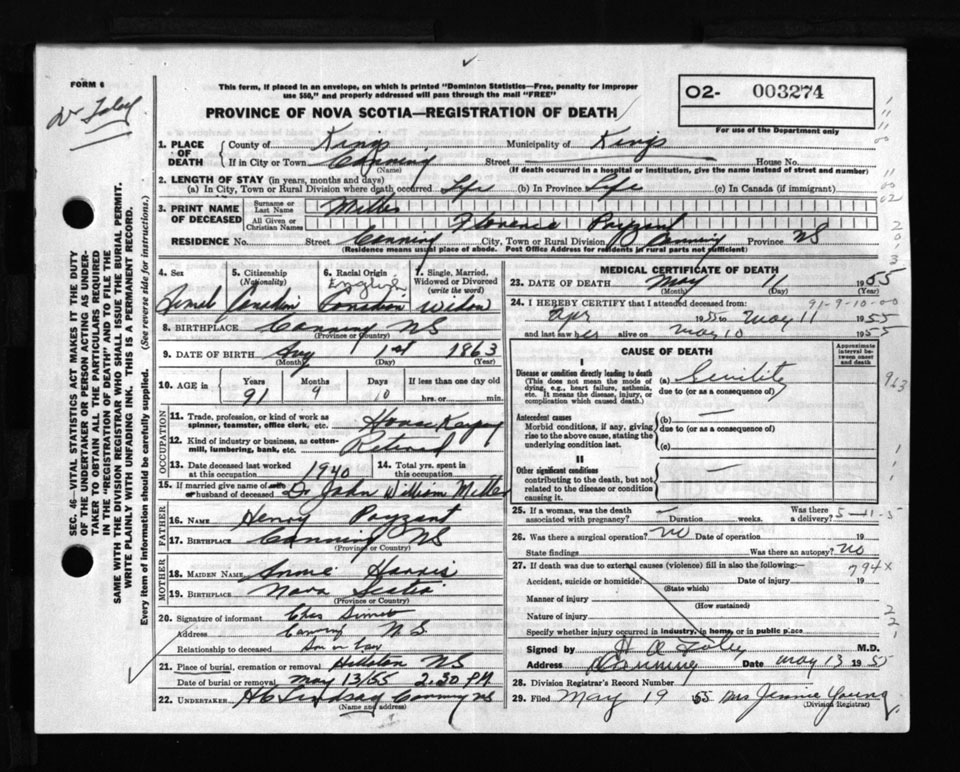 FORM 6
Dr Foley
This form, if placed in an envelope, on which is printed "Dominion Statistics—Free, penalty for improper
use $50," and properly addressed will pass through the mail "FREE"
PROVINCE OF NOVA SCOTIA—REGISTRATION OF DEATH
O2- 003274
For use of the Department only
SEC. 46—VITAL STATISTICS ACT MAKES IT THE DUTY
OF THE UNDERTAKER OR PERSON ACTING AS UNDER-
TAKER TO OBTAIN ALL THE PARTICULARS REQUIRED
IN THE "REGISTRATION OF DEATH" AND TO FILE THE
SAME WITH THE DIVISION REGISTRAR WHO SHALL ISSUE THE BURIAL PERMIT.
WRITE PLAINLY WITH UNFADING INK. THIS IS A PERMANENT RECORD.
Every item of information should be carefully supplied. (See reverse side for instructions.)
1. PLACE OF DEATH County of Kings Municipality of Kings
If in City or Town Canning Street House No.
(Name) (If death occurred in a hospital or institution, give the name instead of street and number)
2. LENGTH OF STAY (in years, months and days)
(a) In City, Town or Rural Division where death occurred Life (b) In Province Life (c) In Canada (if immigrant)
3. PRINT NAME OF DECEASED Surname or Last Name Miller
All Given or Christian Names Florence Payzant
RESIDENCE No. Street Canning City, Town or Rural Division Canning Province NS
(Residence means usual place of abode. Post Office Address for Residents in rural parts not sufficient)
4. Sex 5. Citizenship (Nationality) 6. Racial Origin 7. Single, Married, Widowed or Divorced (write the word)
Female Canadian English Canadian Widow
8. BIRTHPLACE Canning NS
(Province or Country)
9. DATE OF BIRTH Aug 1st 1863
(Month) (Day) (Year)
10. AGE in Years Months Days If less than one day old
91 9 10 hrs. or min.
OCCUPATION
11. Trade, profession, or kind of work as
spinner, teamster, office clerk, etc. House Keeping
12. Kind of industry or business, as cotton-
mill, lumbering, bank, etc. Retired
13. Date deceased last worked at this occupation 1940 14. Total yrs. spent in this occupation
15. If married give name of wife or husband of deceased Dr John William Miller
FATHER
16. NAME Henry Payzant
17. BIRTHPLACE Canning NS
(Province or Country)
MOTHER
18. MAIDEN NAME Annie Harris
19. BIRTHPLACE Nova Scotia
(Province or Country)
20. Signature of informant Chas
Address Canning N.S.
Relationship to deceased Son in Law
21. Place of burial, cremation or removal NS
Date of burial or removal May 13/55 2.30 PM
22. UNDERTAKER H C Lindsay Canning NS
(Name and address)
MEDICAL CERTIFICATE OF DEATH
23. DATE OF DEATH May 11 1955
(Month) (Day) (Year)
24. I HEREBY CERTIFY that I attended deceased from: 91-9-10-00
Apr 1955 to May 11 1955
and last saw her alive on May 10 1955
CAUSE OF DEATH
Approximate interval between onset and death
I
Disease or condition directly leading to death
(This does not mean the mode of
dying, e.g., heart failure, asthenia,
etc. It means the disease, injury, or
complication which caused death.)
(a) Senility
due to (or as a consequence of)
Antecedent causes
Morbid conditions, if any, giving
rise to the above cause, stating the
underlying condition last.
(b) —
due to (or as a consequence of)
(c)
II
Other significant conditions
contributing to the death, but not
related to the disease or condition
causing it.
963
25. If a woman, was the death associated with pregnancy? — Duration weeks. Was there a delivery? 5-11-5
26. Was there a surgical operation? No Date of operation 19
State findings Was there an autopsy? No
27. If death was due to external causes (violence) fill in also the following:—
794X
Accident, suicide or homicide? Date of injury 19
(State which)
Manner of injury
(How sustained)
Nature of injury
Specify whether injury occurred in industry, in home, or in public place
Signed by H A Foley M.D.
Address Canning Date May 13 1955
28. Division Registrar's Record Number
29. Filed May 19 55 Mrs Jennie Young
(Division Registrar)